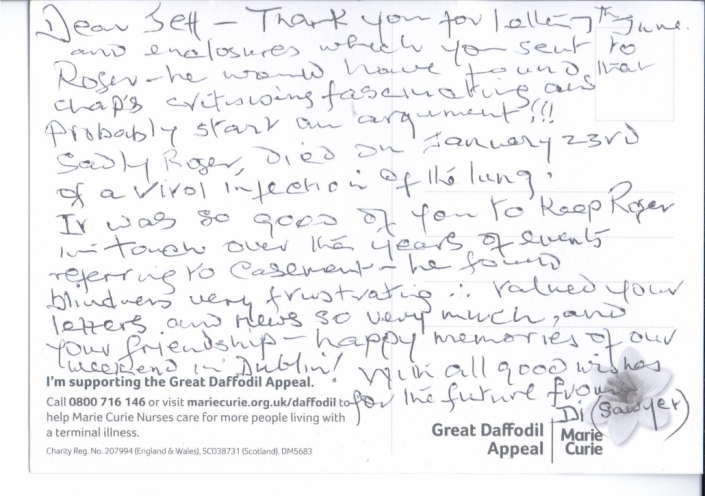 Dear Jeff – Thank you for letter 7th June.
and enclosures which you sent to
Roger – he would have found that
chap's critisising fascinating and
Probably start an argument!!!
Sadly Roger, Died on January 23rd
of a Virol Infection of the lung.
It was so good of you to keep Roger
in-touch over the years of events
referring to Casement – he found
blindness very frustrating ∴ valued your
letters and news so very much, and
your friendship – happy memories of our
weekend in Dublin! With all good wishes
for the future from
Di (Sawyer)
I'm supporting the Great Daffodil Appeal.
Call 0800 716 146 or visit mariecurie.org.uk/daffodil to
help Marie Curie Nurses care for more people living with
a terminal illness.
Charity Reg. No. 207994 (England & Wales), SC038731 (Scotland). DM5683
Great Daffodil
Appeal
Marie
Curie